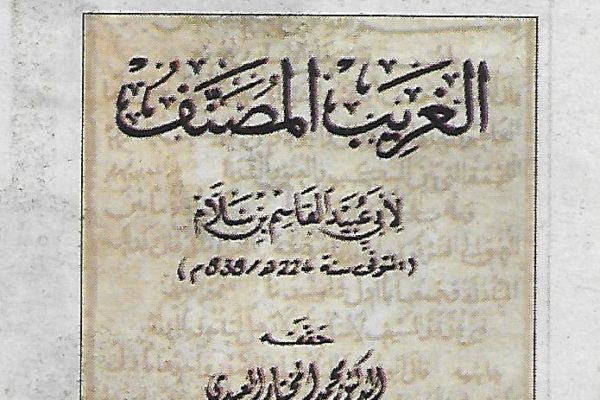 الغريب المصنف
لأبي عبيد القاسم بن سلام
(المتوفى سنة 224هـ/838م)
حققه
الدكتور محمد المختار العبيدي